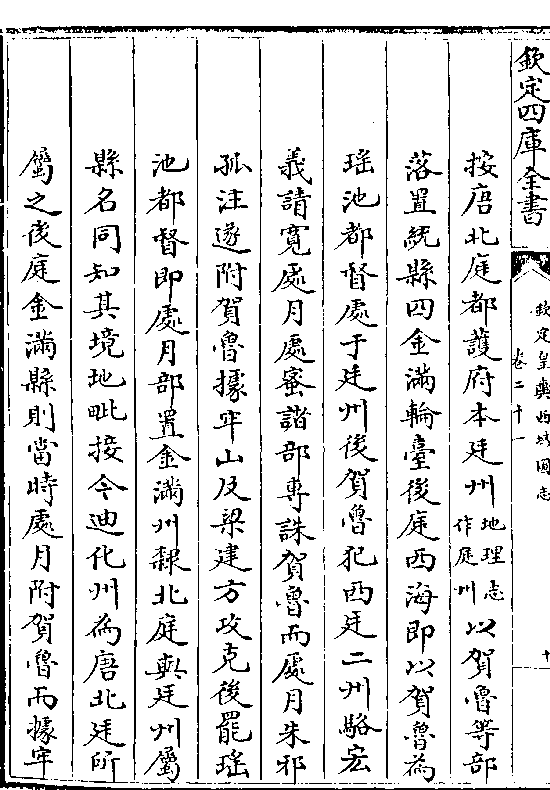 欽定四庫全書
欽定皇輿西域圖志
卷二十一
十
按唐北庭都護府本廷州地理志作庭州以賀魯等部
落置統縣四金滿輪臺後庭西海即以賀魯為
瑶池都督處于廷州後賀魯犯西廷二州駱宏
義請寛處月處蜜諸部專誅賀魯而處月朱邪
孤注遂附賀魯據牢山及梁建方攻克後罷瑶
池都督即處月部置金滿州隸北庭與廷州屬
縣名同知其境地毗接今迪化州為唐北廷所
屬之後庭金滿縣則當時處月附賀魯而據牢